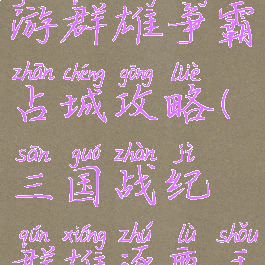 游群雄争霸
zhān chéng gōng lüè
占城攻略(
sān guó zhàn jì
三国战纪
qún xióng zhú lù shǒu
群雄逐鹿手